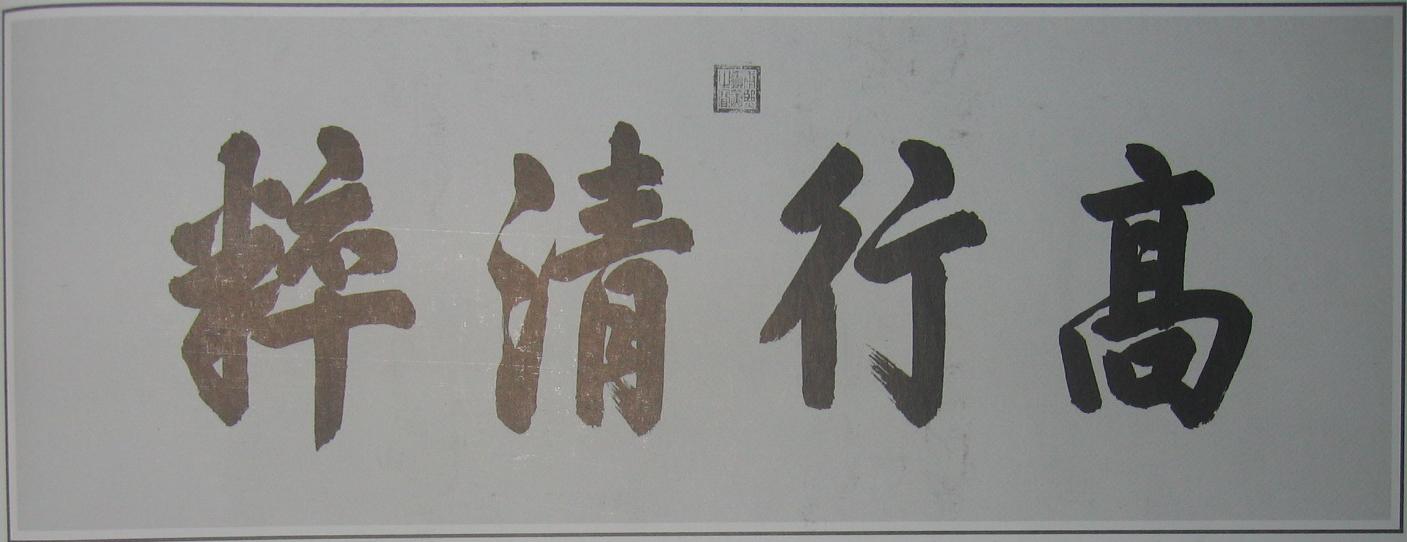 高行清粹